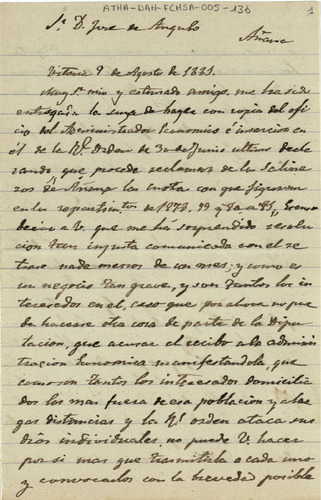 ATHA-DAH-FCHSA-005-136
1
Sr. D. Jose de Angulo
Añana
Vitoria 9 de Agosto de 1881.
Muy Sr. mio y estimado amigo, me ha sido
entregada la suya de hoy con copia del ofi
cio del Administrador Economico é insercion en
él de la Rl. Orden de 30 de Junio ultimo decla
rando que procede reclamar de los Saline
ros de Añana la cuota con que figuran
en los repartimtos. de 1878, 79 y 80 a 81,
decir a V. que me ha sorprendido resolu
cion tan injusta comunicada con el re
traso nada menos de un mes; y como es
un negocio tan grave, y son tantos los in
teresados en el, creo que por ahora no pue
de hacerse otra cosa de parte de la Dipu
tacion, que acusar el recibo a la adminis
tracion Economica manifestandola, que
como son tantos los interesados domicilia
dos los mas fuera de esa poblacion y a lar
gas distancias y la Rl. orden ataca sus
dros individuales no puede V. hacer
por si mas que transmitirla a cada uno
y convocarlos con la brevedad posible